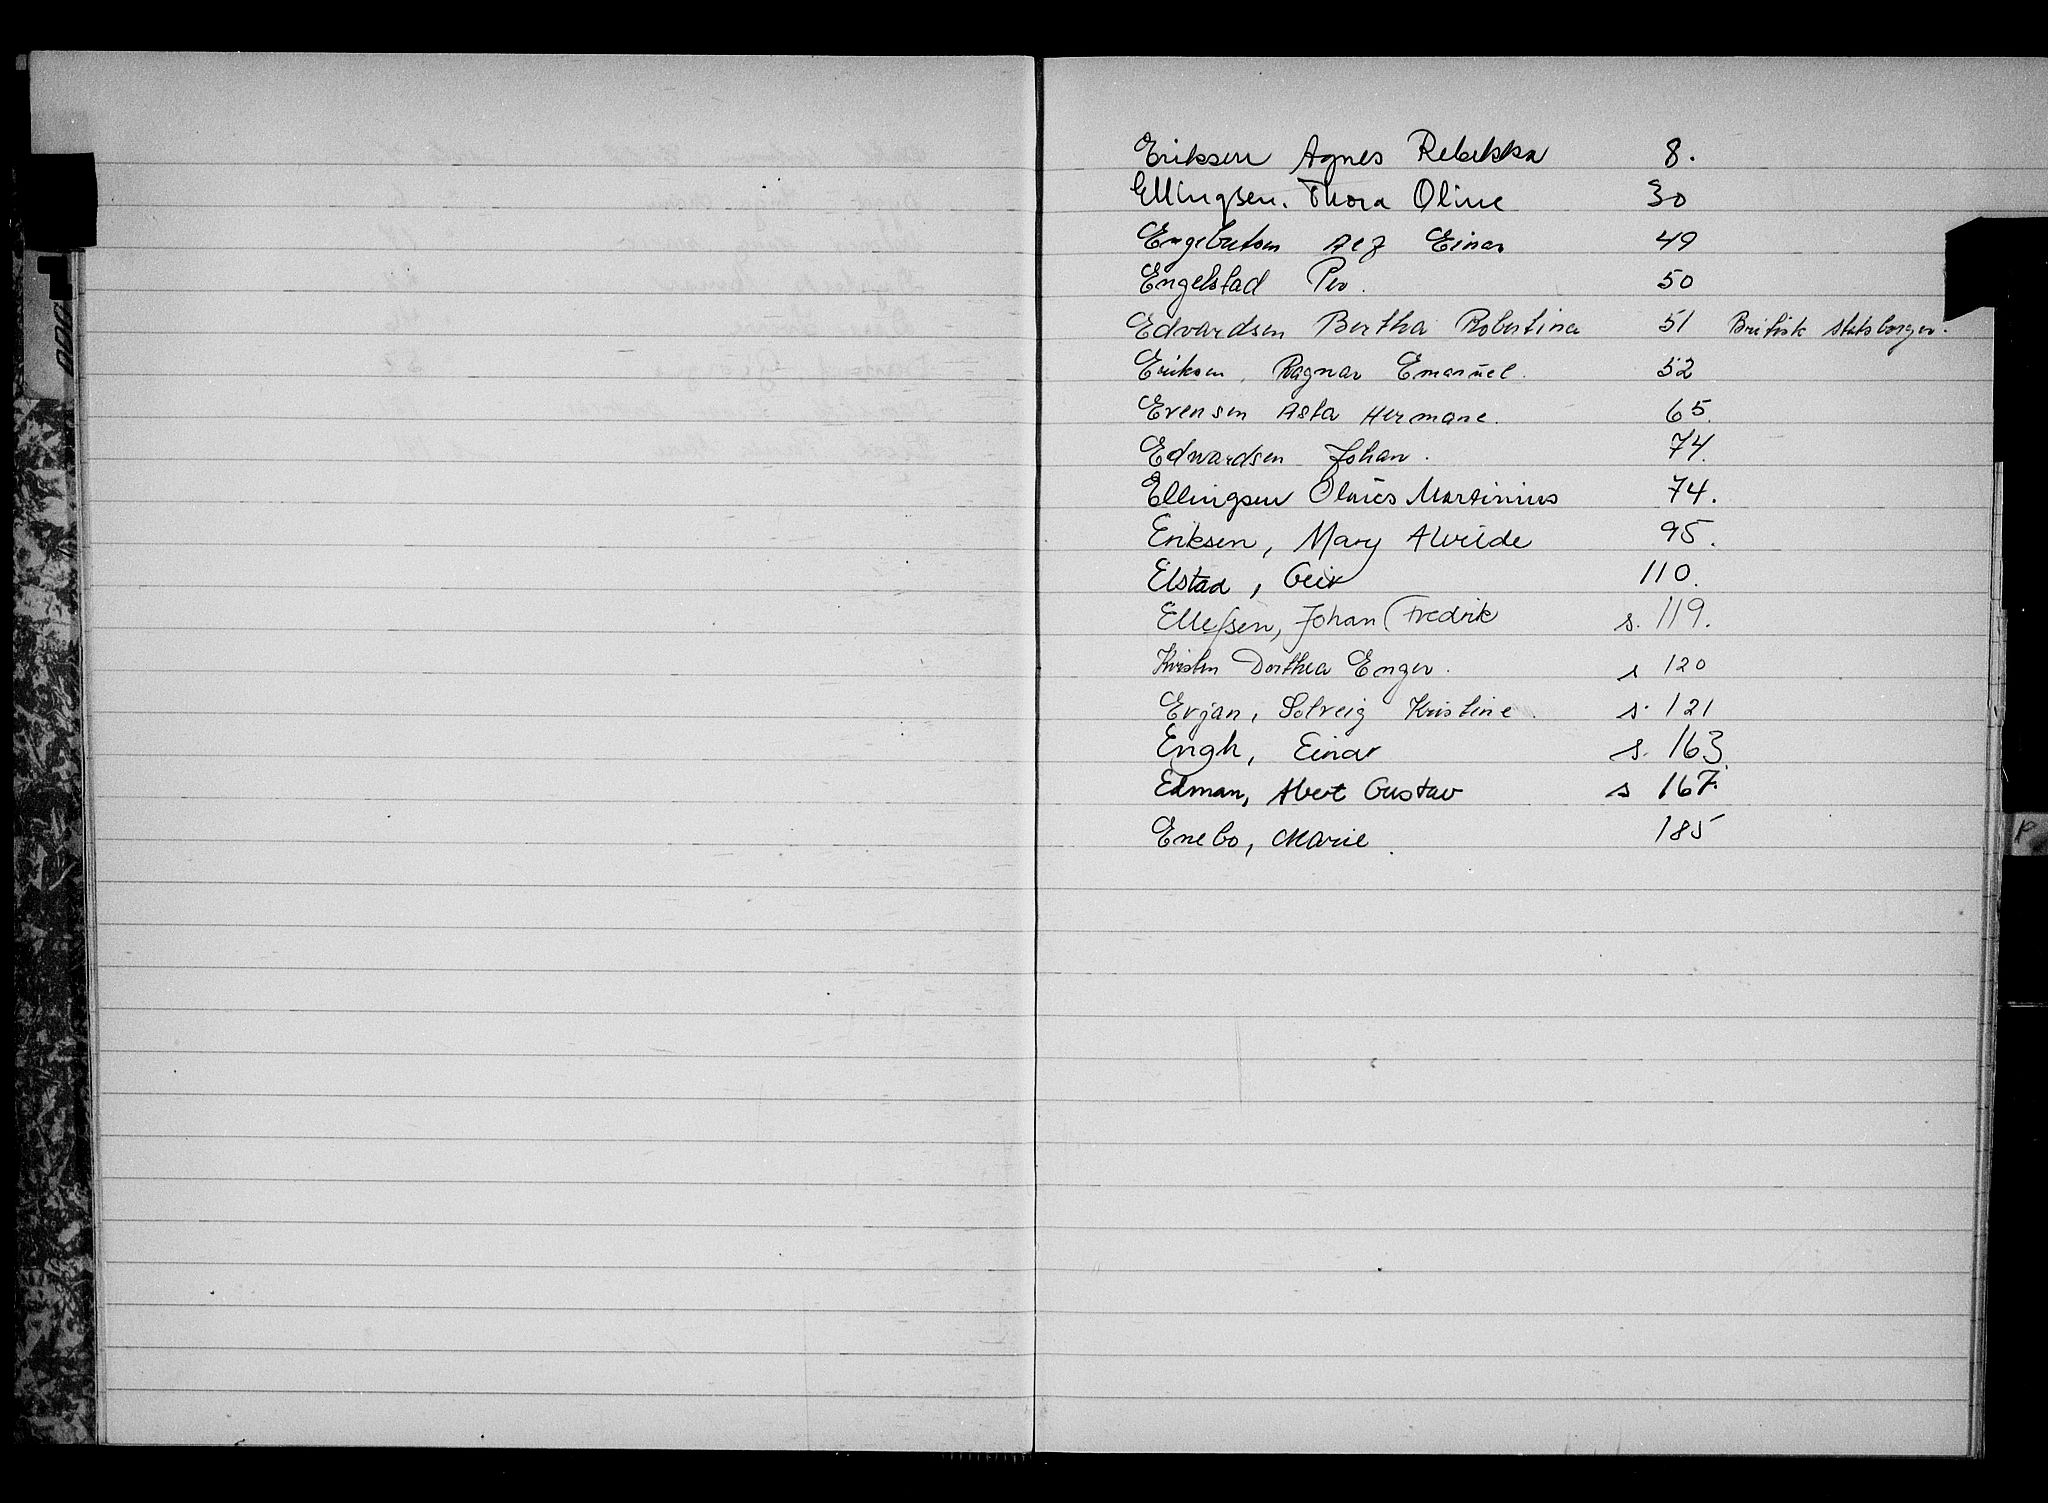 Eriksen Agnes Rebekka 8.
Ellingsen. Thora Oline 30
Engebretsen Einar 49
Engelstad Per. 50
Edvardsen Bertha Robertina 51 Britisk statsborger.
Eriksen, Ragnar Emanuel. 52
Evensen Asta Hermane. 65.
Edwardsen Johan. 74.
Ellingsen Olaus Martinius 74.
Eriksen, Mary Alvilde 95.
Elstad, Geir 110.
Ellefsen, Johan Fredrik s. 119.
Kirsten Dorthea Enger. s 120
Evjan, Solveig Kristine. s. 121
Engh, Einar s. 163.
Edman, Albert Gustav s 167.
Enebo, Marie. 185